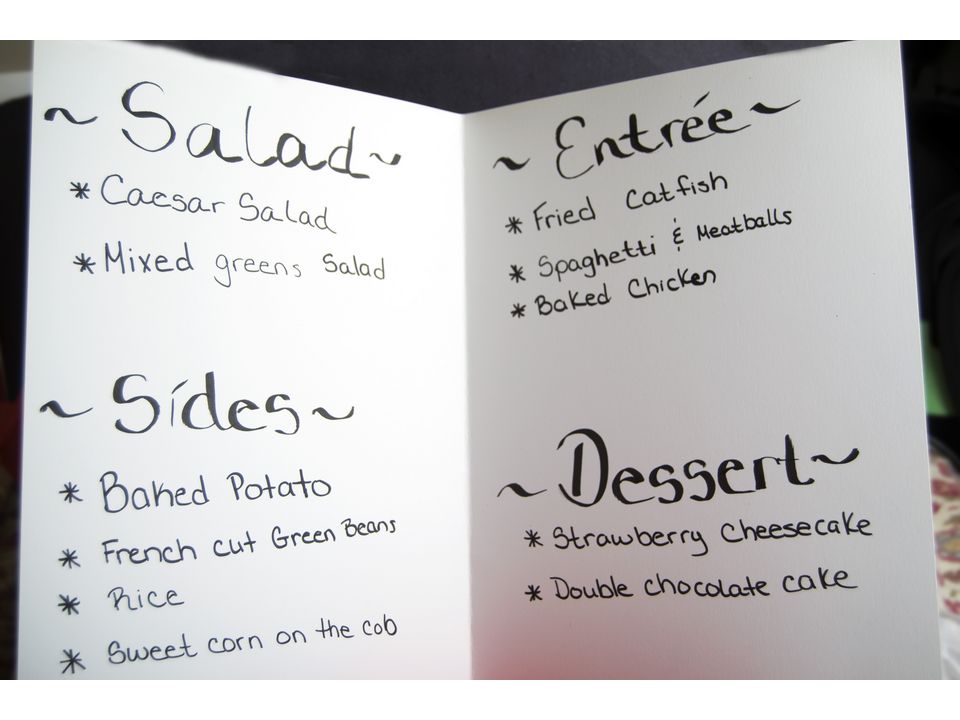 ~ Salad ~
* Caesar Salad
* Mixed greens Salad
~ Sides ~
* Baked Potato
* French cut Green Beans
* Rice
* Sweet corn on the cob
~ Entrée ~
* Fried Catfish
* Spaghetti & Meatballs
* Baked Chicken
~ Dessert ~
* Strawberry Cheesecake
* Double chocolate cake